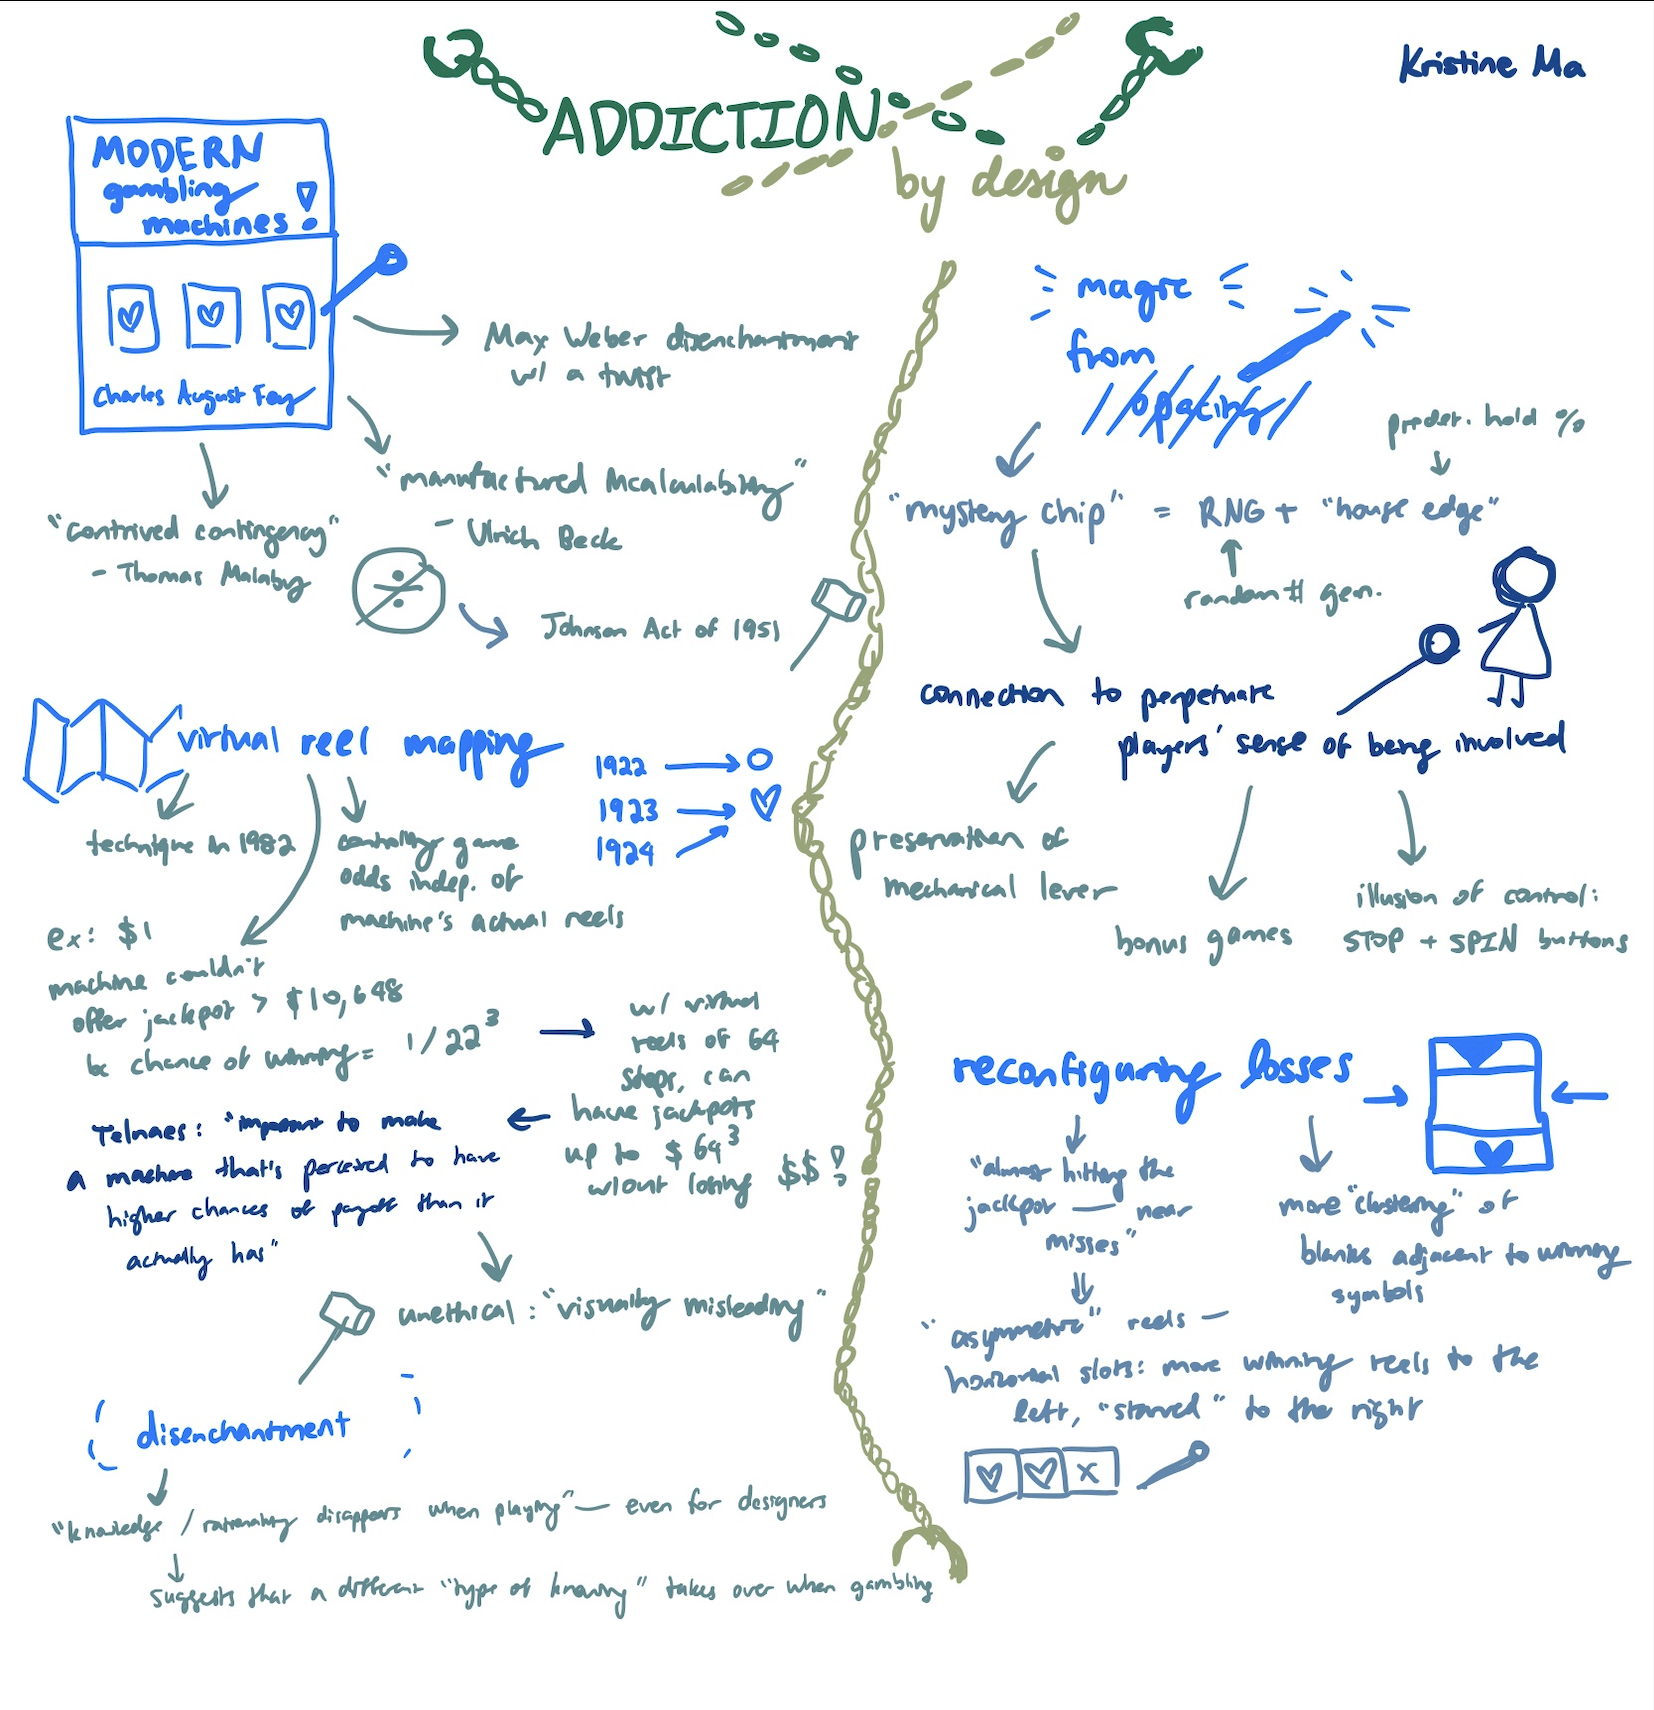 Kristine Ma
ADDICTION
by design
MODERN
gambling
machines!
Charles August Fey
Max Weber disenchantment
w/ a twist
"manufactured incalculability"
- Ulrich Beck
"contrived contingency"
- Thomas Malaby
Johnson Act of 1951
virtual reel mapping
technique in 1982
controlling game
odds indep. of
machine's actual reels
1922
1923
1924
ex: $1
machine couldn't
offer jackpot > $10,648
bc chance of winning = 1/22³
w/ virtual
reels of 64
stops, can
have jackpots
up to $64³
w/out losing $$!
Telnaes: "important to make
a machine that's perceived to have
higher chances of payoff than it
actually has"
unethical: "visually misleading"
disenchantment
"knowledge / rationality disappears when playing" — even for designers
suggests that a different "type of knowing" takes over when gambling
magic
from
opacity
preder. hold %
"mystery chip" = RNG + "house edge"
random # gen.
connection to perpetuate
players' sense of being involved
preservation of
mechanical lever
bonus games
illusion of control:
STOP + SPIN buttons
reconfiguring losses
"almost hitting the
jackpot — near
misses"
more "clustering" of
blanks adjacent to winning
symbols
"asymmetric" reels —
horizontal slots: more winning reels to the
left, "starved" to the right
x